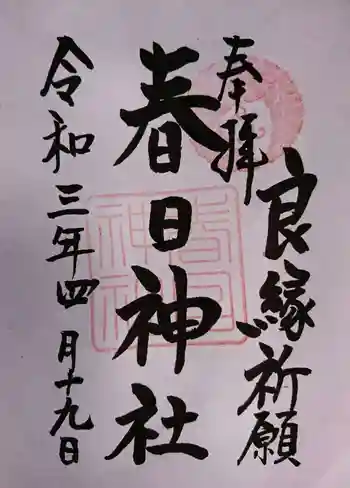 良縁祈願
奉拝
春日神社
令和三年四月十九日